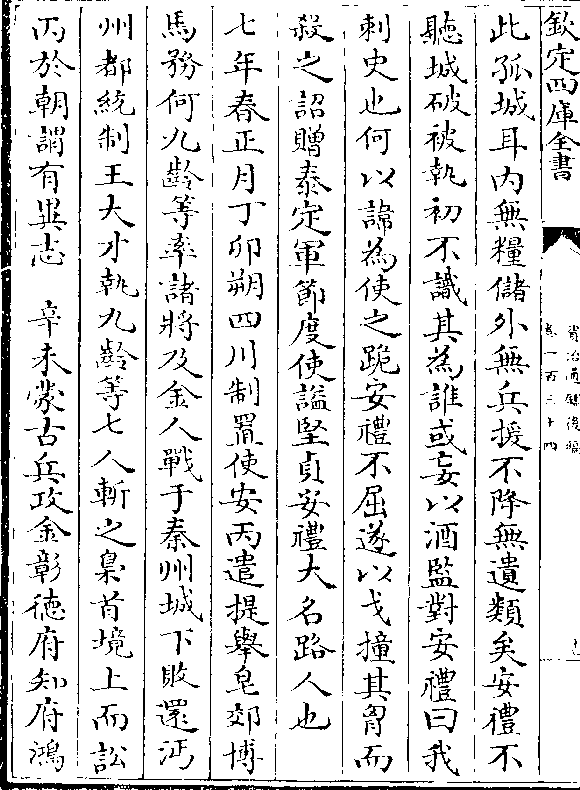 欽定四庫全書
此孤城耳内無糧儲外無兵援不降無遺類矣安禮不
聽城破被執初不識其為誰或妄以酒監對安禮曰我
刺史也何以諱為使之跪安禮不屈遂以戈撞其胷而
殺之詔贈泰定軍節度使諡堅貞安禮大名路人也
七年春正月丁卯朔四川制置使安丙遣提舉皂郊博
馬務何九齡等率諸將及金人戰于秦州城下敗還沔
州都統制王大才執九齡等七人斬之梟首境上而訟
丙於朝謂有異志　辛未蒙古兵攻金彰徳府知府鴻
資治通鑑後編
卷一百三十四